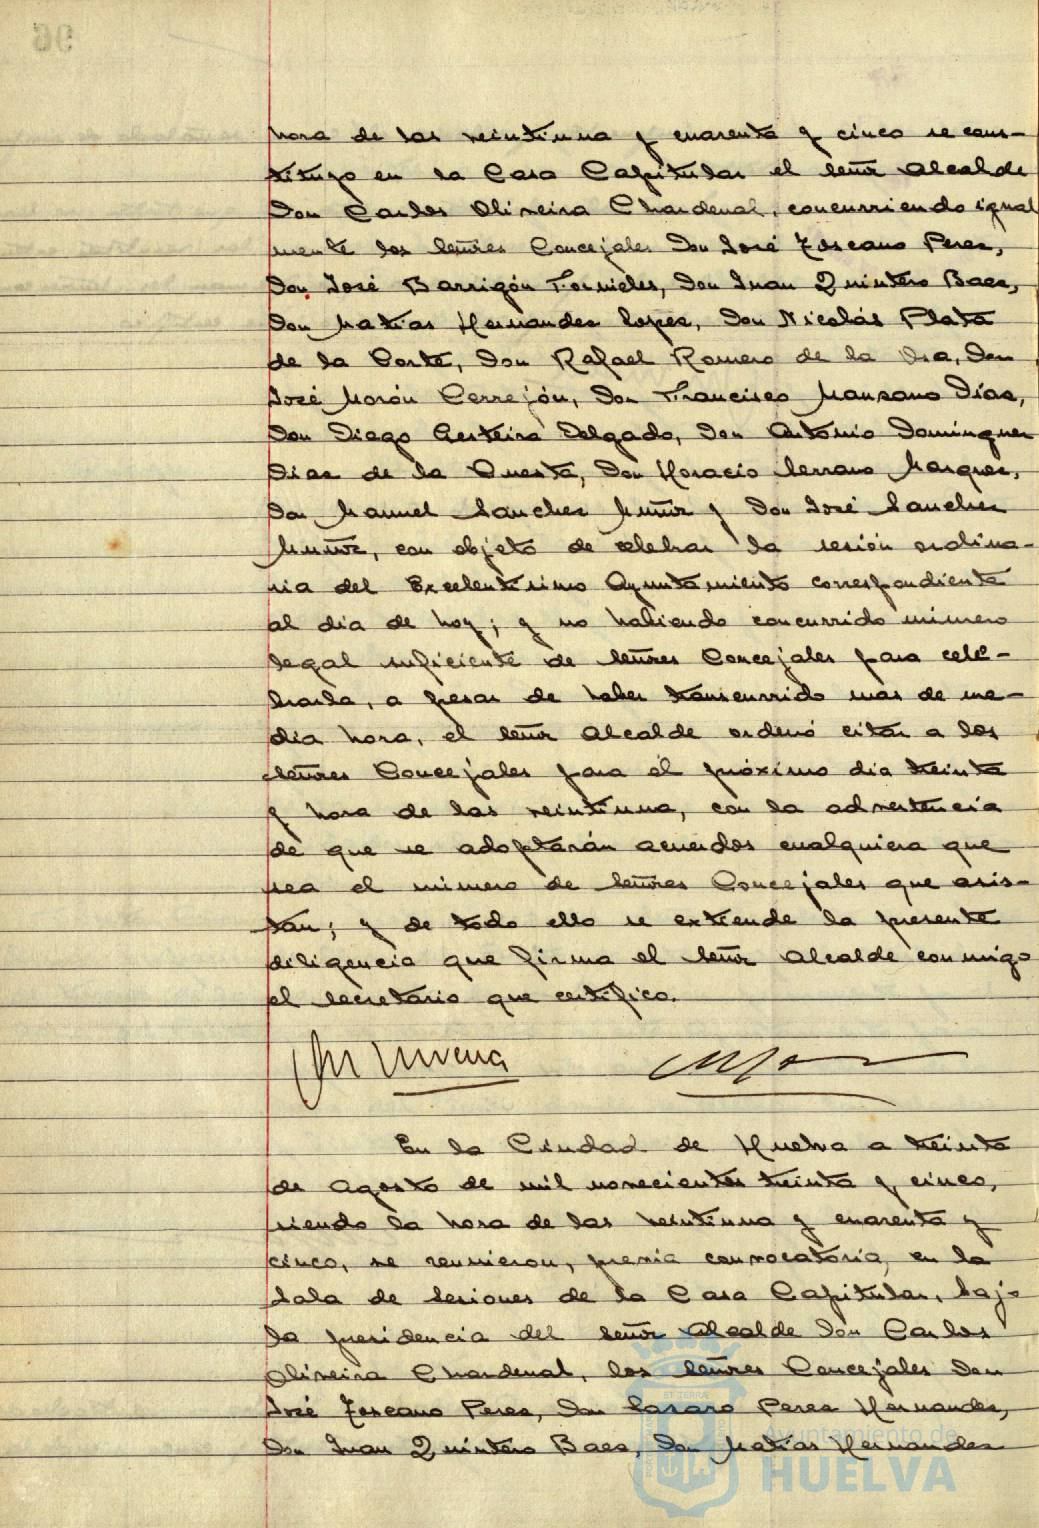 96
hora de las veintiuna y cuarenta y cinco se cons-
tituyó en la Casa Capitular el señor Alcalde
Don Carlos Oliveira Chardenal, concurriendo igual
mente los señores Concejales Don José Toscano Perez,
Don José Barrigón Fornieles, Don Juan Quintero Baez,
Don Matias Hernandez Lopez, Don Nicolás Plata
de la Corte, Don Rafael Romero de la Osa, Don
José Morón Cerrejón, Don Francisco Manzano Díaz,
Don Diego Gesteira Delgado, Don Antonio Dominguez
Diaz de la Cuesta, Don Horacio Serrano Marquez,
Don Manuel Sanchez Muñiz y Don José Sanchez
Muñiz, con objeto de celebrar la sesión ordina-
ria del Excelentisimo Ayuntamiento correspondiente
al dia de hoy; y no habiendo concurrido número
legal suficiente de señores Concejales para cele-
brarla, a pesar de haber transcurrido mas de me-
dia hora, el señor Alcalde ordenó citar a los
señores Concejales para el próximo dia treinta
y hora de las veintiuna, con la advertencia
de que se adoptarán acuerdos cualquiera que
sea el número de señores Concejales que asis-
tan; y de todo ello se extiende la presente
diligencia que firma el señor Alcalde conmigo
el Secretario que certifico.
En la Ciudad de Huelva a treinta
de Agosto de mil novecientos treinta y cinco,
siendo la hora de las veintiuna y cuarenta y
cinco, se reunieron, previa convocatoria, en la
Sala de Sesiones de la Casa Capitular, bajo
la presidencia del señor Alcalde Don Carlos
Oliveira Chardenal, los señores Concejales Don
José Toscano Perez, Don Lazaro Perez Hernandez,
Don Juan Quintero Baez, Don Matias Hernandez
Ayuntamiento de
HUELVA